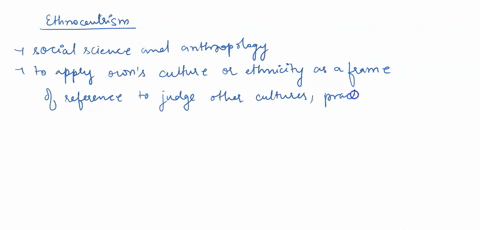 Ethnocentrism
→ social science and anthropology
→ to apply own's culture or ethnicity as a frame
of reference to judge other cultures, prac